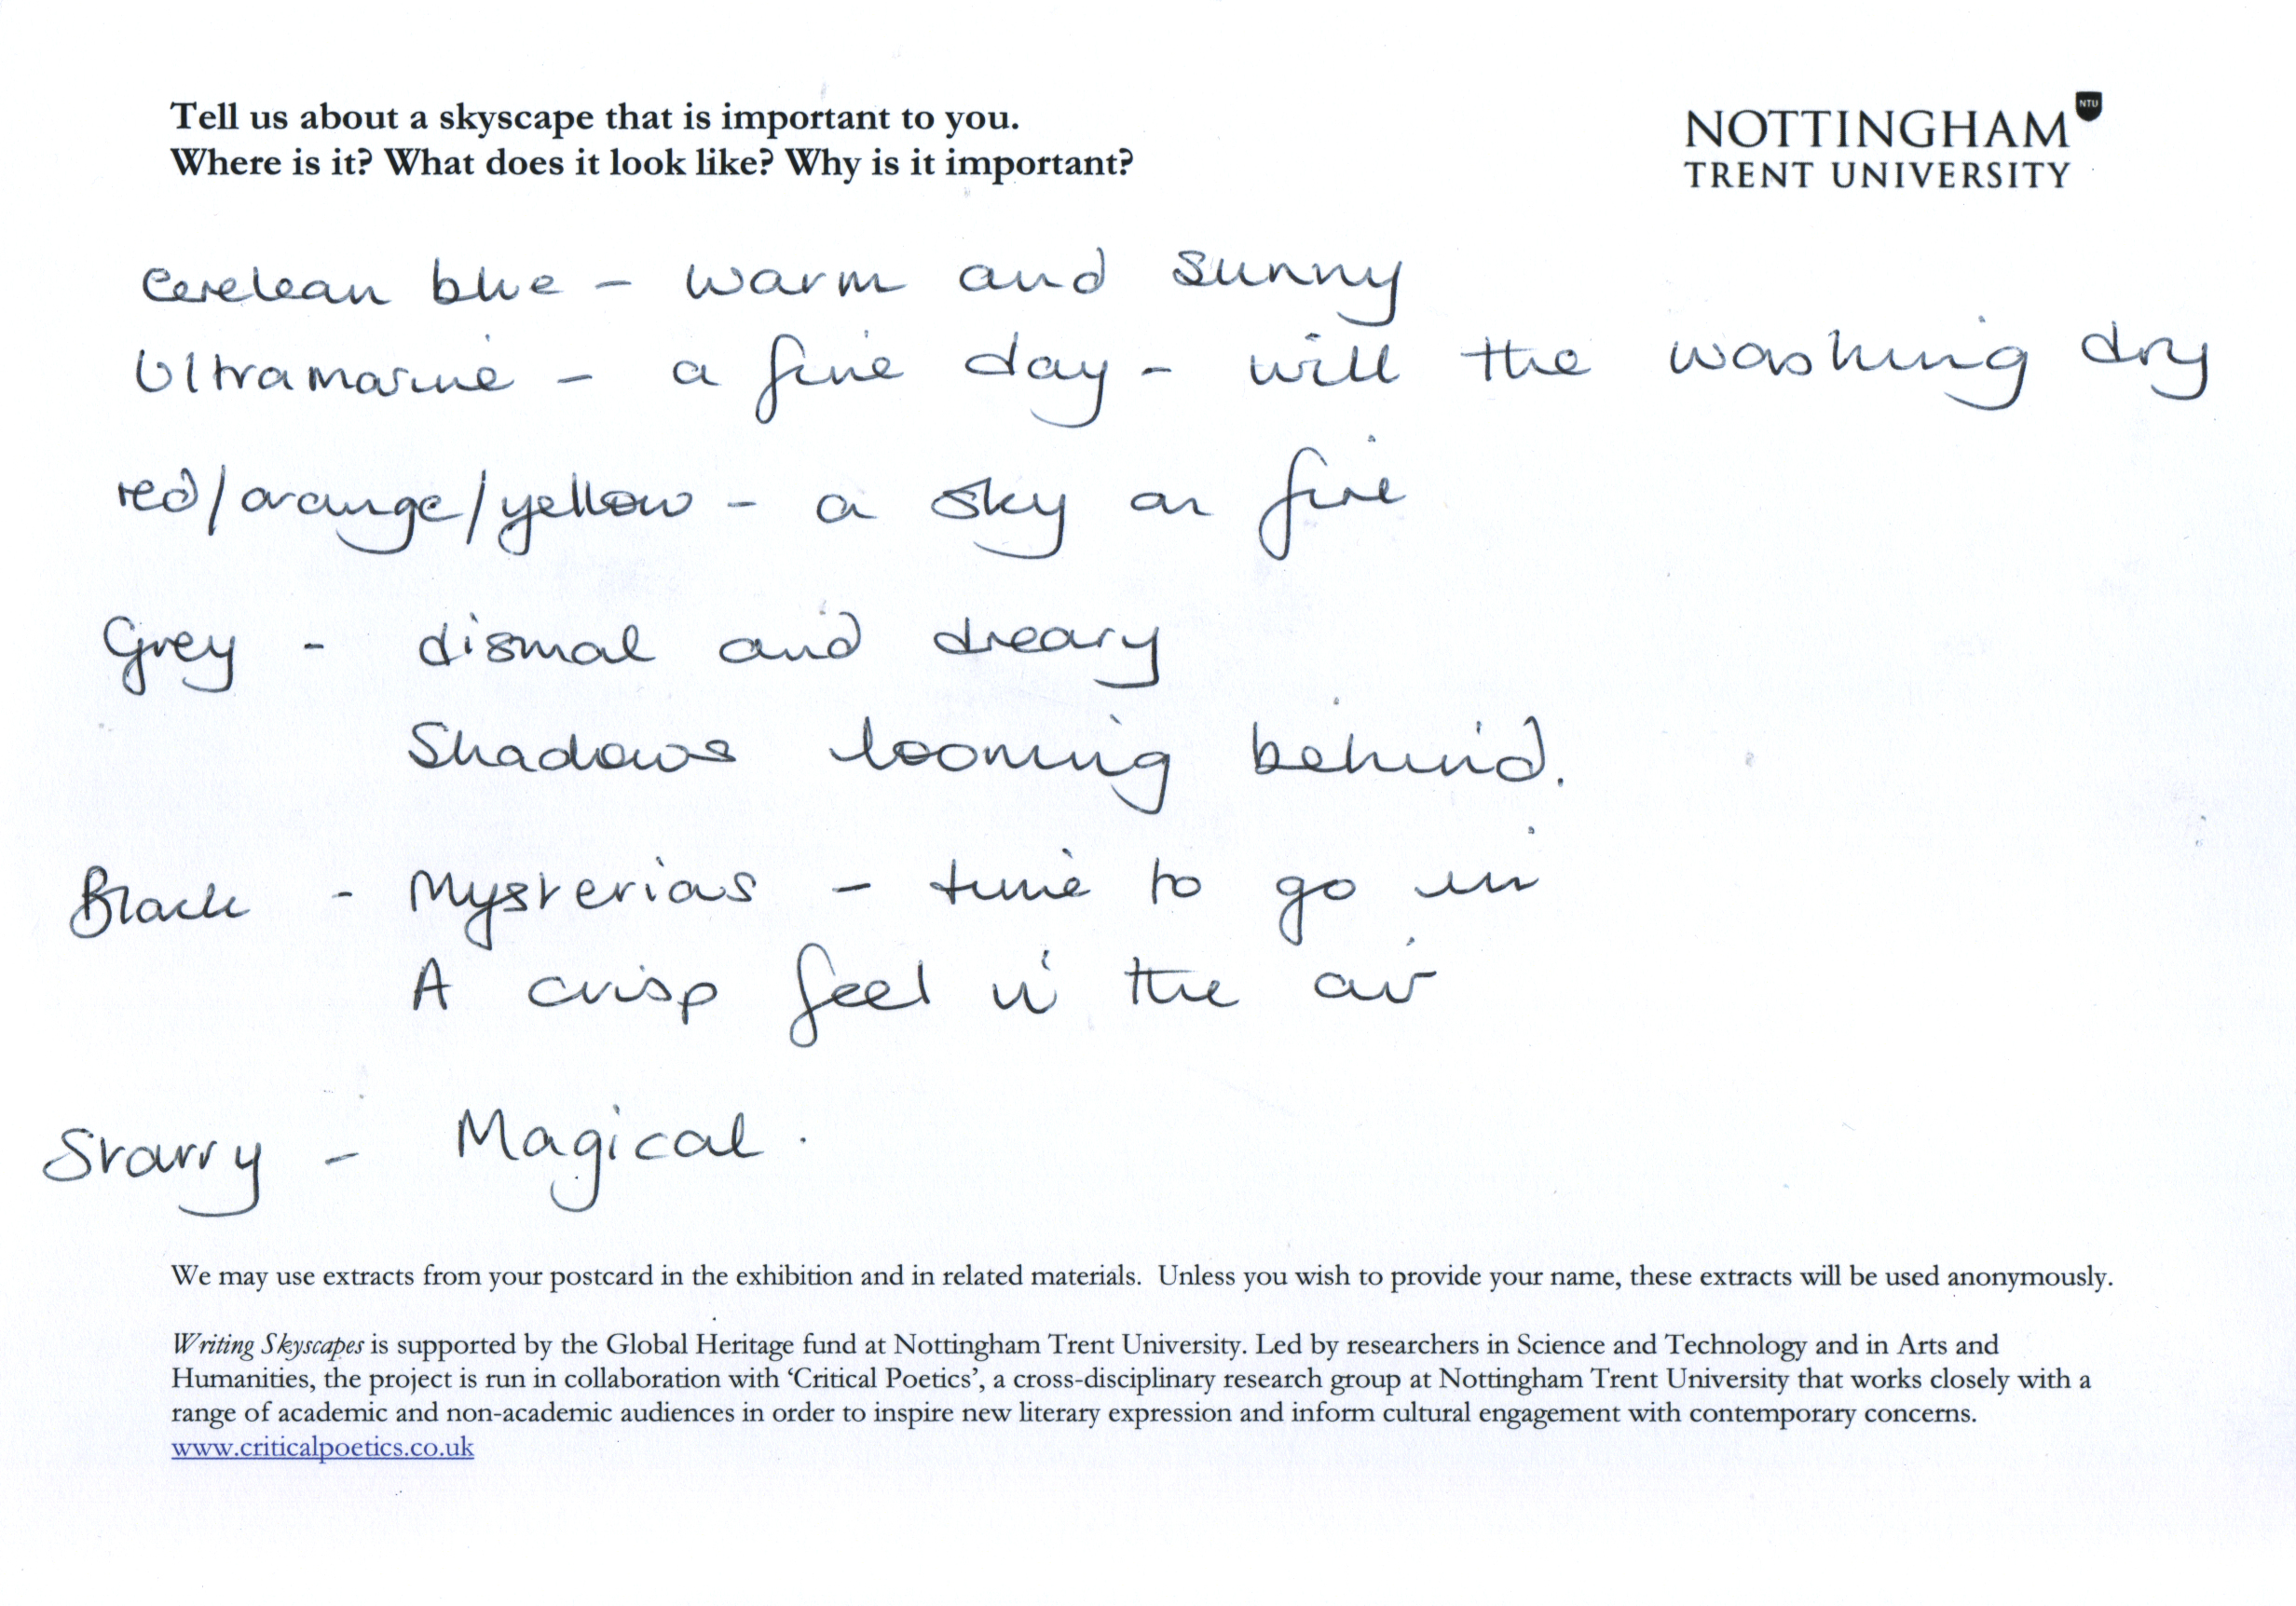 Tell us about a skyscape that is important to you.
Where is it? What does it look like? Why is it important?
NOTTINGHAM NTU
TRENT UNIVERSITY
Cerelean blue – warm and sunny
Ultramarine – a fine day – will the washing dry
red/orange/yellow – a sky on fire
Grey – dismal and dreary
Shadows looming behind.
Black – Mysterious – time to go in
A crisp feel in the air
Starry – Magical.
We may use extracts from your postcard in the exhibition and in related materials. Unless you wish to provide your name, these extracts will be used anonymously.
Writing Skyscapes is supported by the Global Heritage fund at Nottingham Trent University. Led by researchers in Science and Technology and in Arts and
Humanities, the project is run in collaboration with ‘Critical Poetics’, a cross-disciplinary research group at Nottingham Trent University that works closely with a
range of academic and non-academic audiences in order to inspire new literary expression and inform cultural engagement with contemporary concerns.
www.criticalpoetics.co.uk